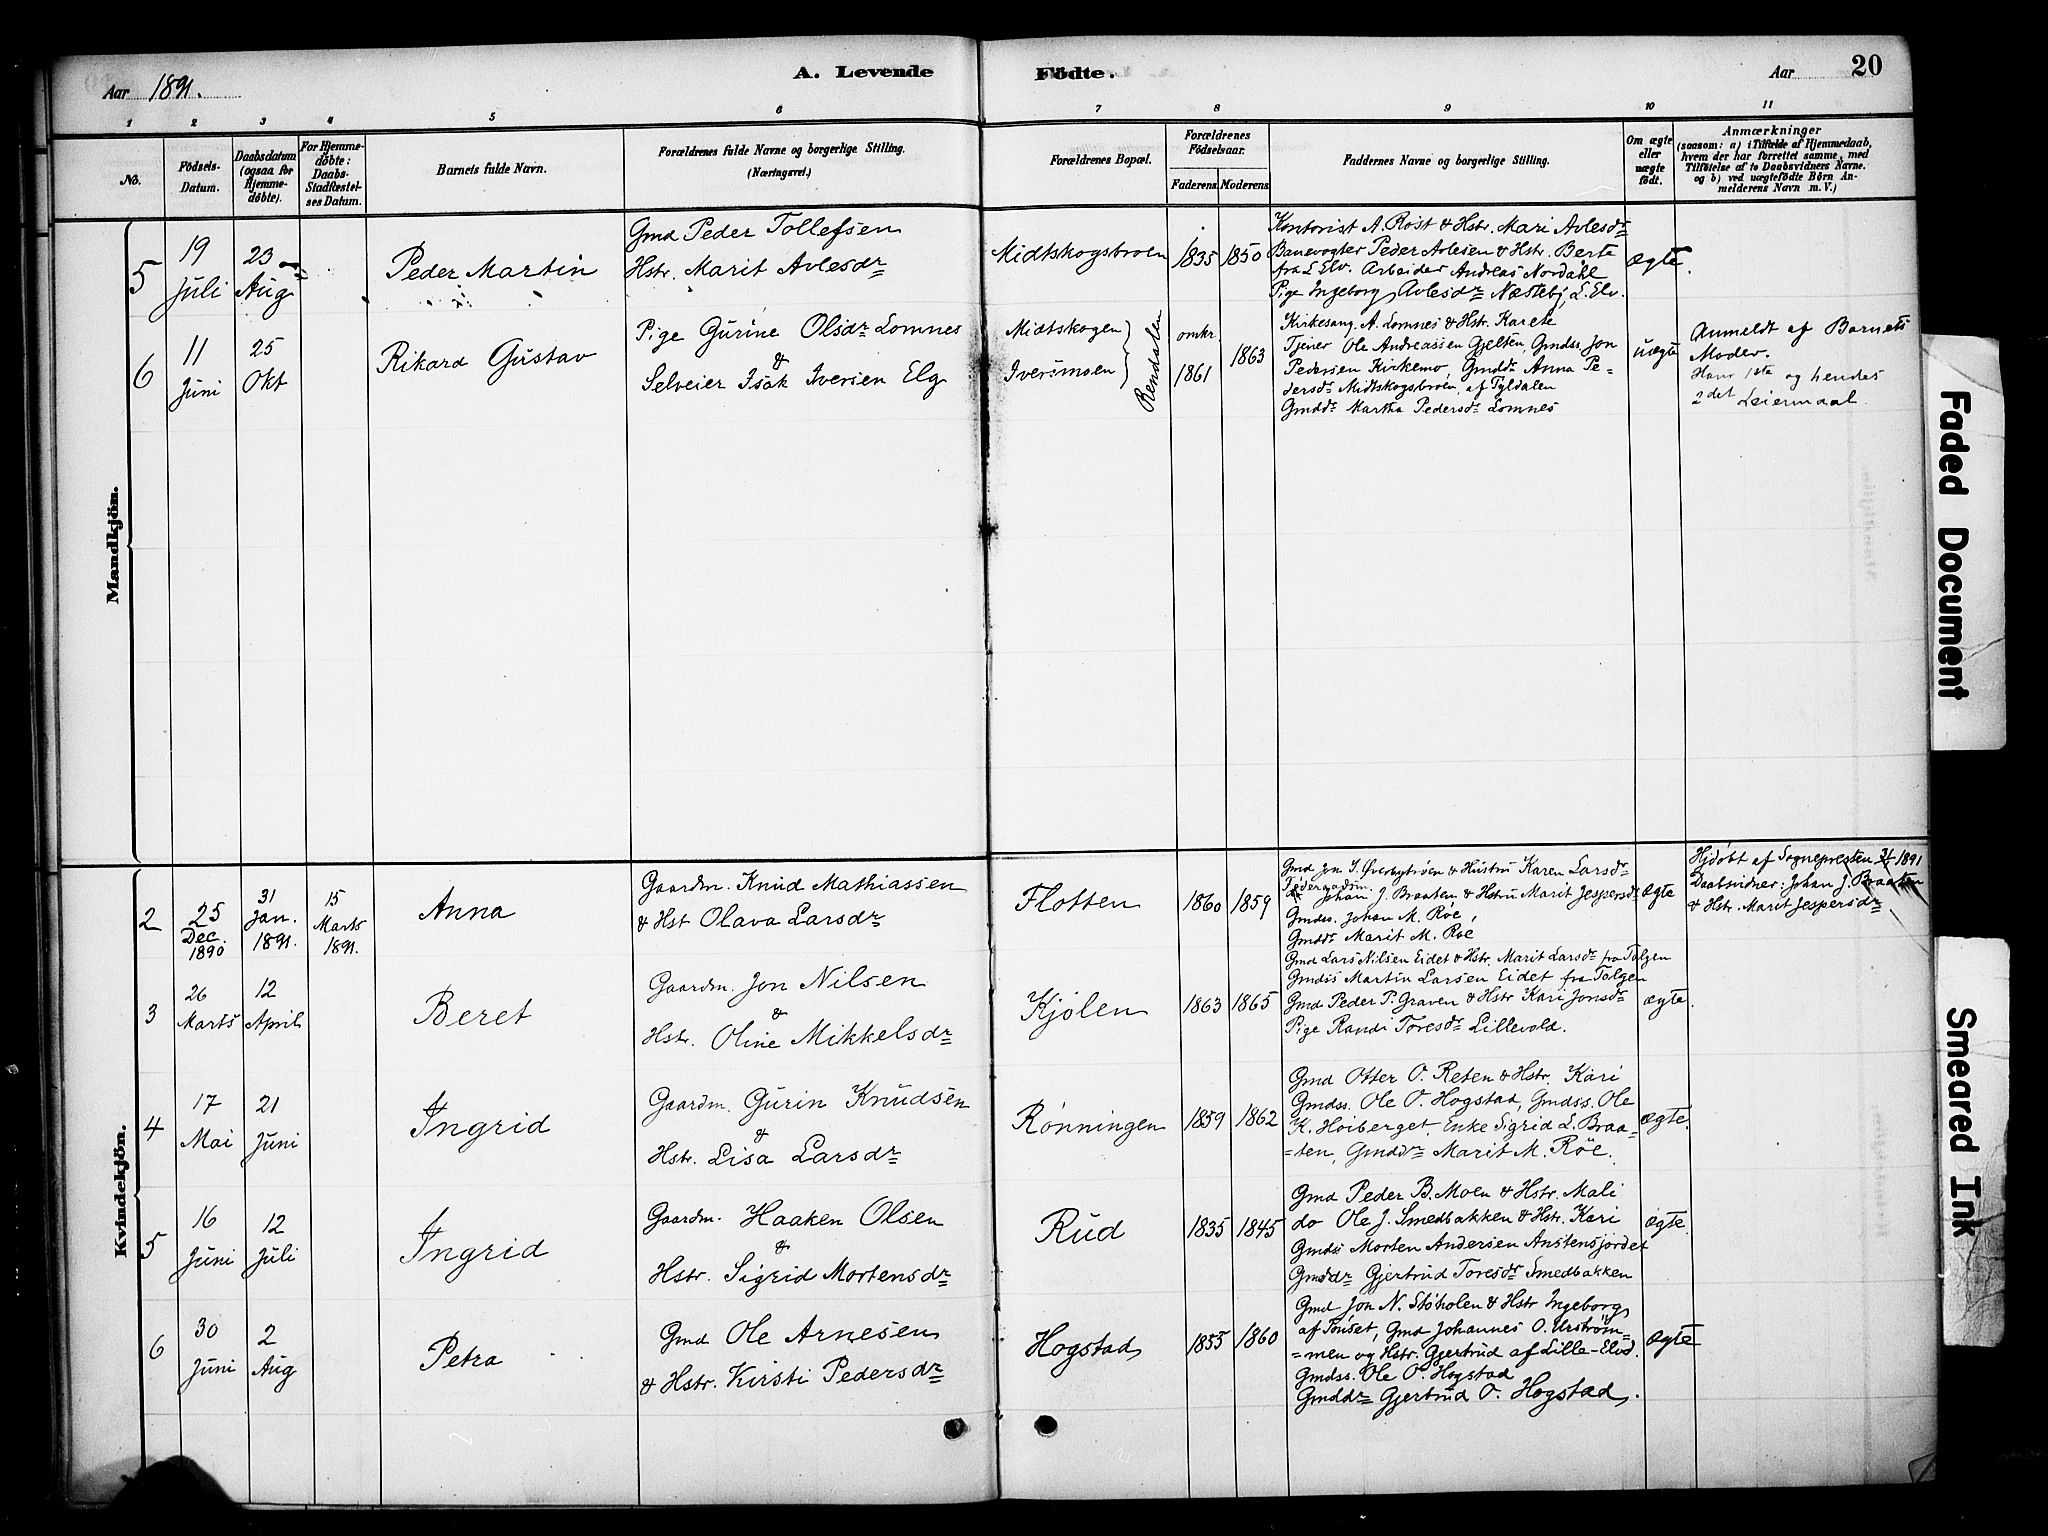 Aar 1891.
A. Levende Födte.
Aar 20
1 2 3 4 5 6 7 8 9 10 11
No.
Födsels-Datum.
Daabsdatum (ogsaa for Hjemmedöbte).
For Hjemmedöbte: Daabs-Stadfæstelses Datum.
Barnets fulde Navn.
Forældrenes fulde Navne og borgerlige Stilling.
(Næringsvei.)
Forældrenes Bopæl.
Forældrenes Födselsaar.
Faderens. Moderens.
Faddernes Navne og borgerlige Stilling.
Om ægte eller uægte födt.
Anmærkninger
(saasom: a) i Tilfælde af Hjemmedaab,
hvem der har forrettet samme, med
Tilföielse af to Daabsvidners Navne.
og b) ved uægtefödte Börn Anmelderens Navn m. V.)
Mandkjön.
5
19 Juli
23 Aug
Peder Martin
Gmd Peder Tollefsen
Hstr. Marit Avlesdr
Midtskogsbroen
1835 1850
Kontorist A. Rost & Hstr. Mari Avlesdr
Banevogter Peder Avlesen & Hstr. Berte
fra L Elv. Arbeider Andreas Nordahl
Pige Ingeborg Avlesdr Næstebj, L. Elv.
ægte.
6
11 Juni
25 Okt
Rikard Gustav
Pige Gurine Olsdr Lomnes
&
Selveier Isak Iversen Elg
Midtskogen
Iversmoen
Rendalen
omkr. 1861
1863
Kirkesang. A. Lomnes & Hstr. Karete
Tjener Ole Andreassen Gjelten, Gmdss. Jon
Pedersen Kirkemo, Gmddr Anna Pe-
dersdr Midtskogsbroen, af Tyldalen
Gmddr Martha Pedersdr Lomnes
uægte
Anmeldt af Barnets
Moder.
Hans 1ste og hendes
2det Leiermaal.
Kvindekjön.
2
25 Dec. 1890
31 Jan. 1891.
15 Marts 1891.
Anna
Gaardm. Knud Mathiassen
& Hst Olava Larsdr
Flotten
1860 1859
Gmd Jon J. Øverbytrøen & Hustru Karen Larsdr
Føderaadsm. Johan J. Braaten & Hstru Marit Jespersdr
Gmdss. Johan M. Røe,
Gmddr Marit M. Røe
ægte
Hjdøbt af Sognepresten 31/1 1891
Daabsvidner: Johan J. Braaten
& Hstr. Marit Jespersdr
3
26 Marts
12 April
Beret
Gaardm. Jon Nilsen
&
Hstr. Oline Mikkelsdr
Kjølen
1863 1865
Gmd Lars Nilsen Eidet & Hstr. Marit Larsdr fra Tolgen
Gmdss Martin Larsen Eidet fra Tolgen
Gmd Peder P. Graven & Hstr Kari Jonsdr
Pige Randi Toresdr Lillevold.
ægte.
4
17 Mai
21 Juni
Ingrid
Gaardm. Gurin Knudsen
&
Hstr. Lisa Larsdr
Rønningen
1859 1862
Gmd Otter O. Reten & Hstr. Kari
Gmdss. Ole O. Hogstad, Gmdss. Ole
K. Hoiberget, Enke Sigrid L. Braa-
=ten, Gmddr Marit M. Røe.
ægte.
5
16 Juni
12 Juli
Ingrid
Gaardm. Haaken Olsen
&
Hstr. Sigrid Mortensdr
Rud
1835 1845
Gmd Peder B. Moen & Hstr. Mali
do Ole J. Smedbakken & Hstr. Kari
Gmdss Morten Andersen Anstensjordet
Gmddr Gjertrud Toresdr Smedbakken
ægte.
6
30 Juni
2 Aug
Petra
Gmd Ole Arnesen
& Hstr. Kirsti Pedersdr
Hogstad
1855 1860
Gmd Jon N. Støholen & Hstr Ingeborg
af Tønset, Gmd Johannes O. Urstrøm-
=men og Hstr. Gjertrud af Lille-Elvd.
Gmdss. Ole O. Hogstad
Gmddr Gjertrud O. Hogstad.
ægte
Faded Document
Smeared Ink